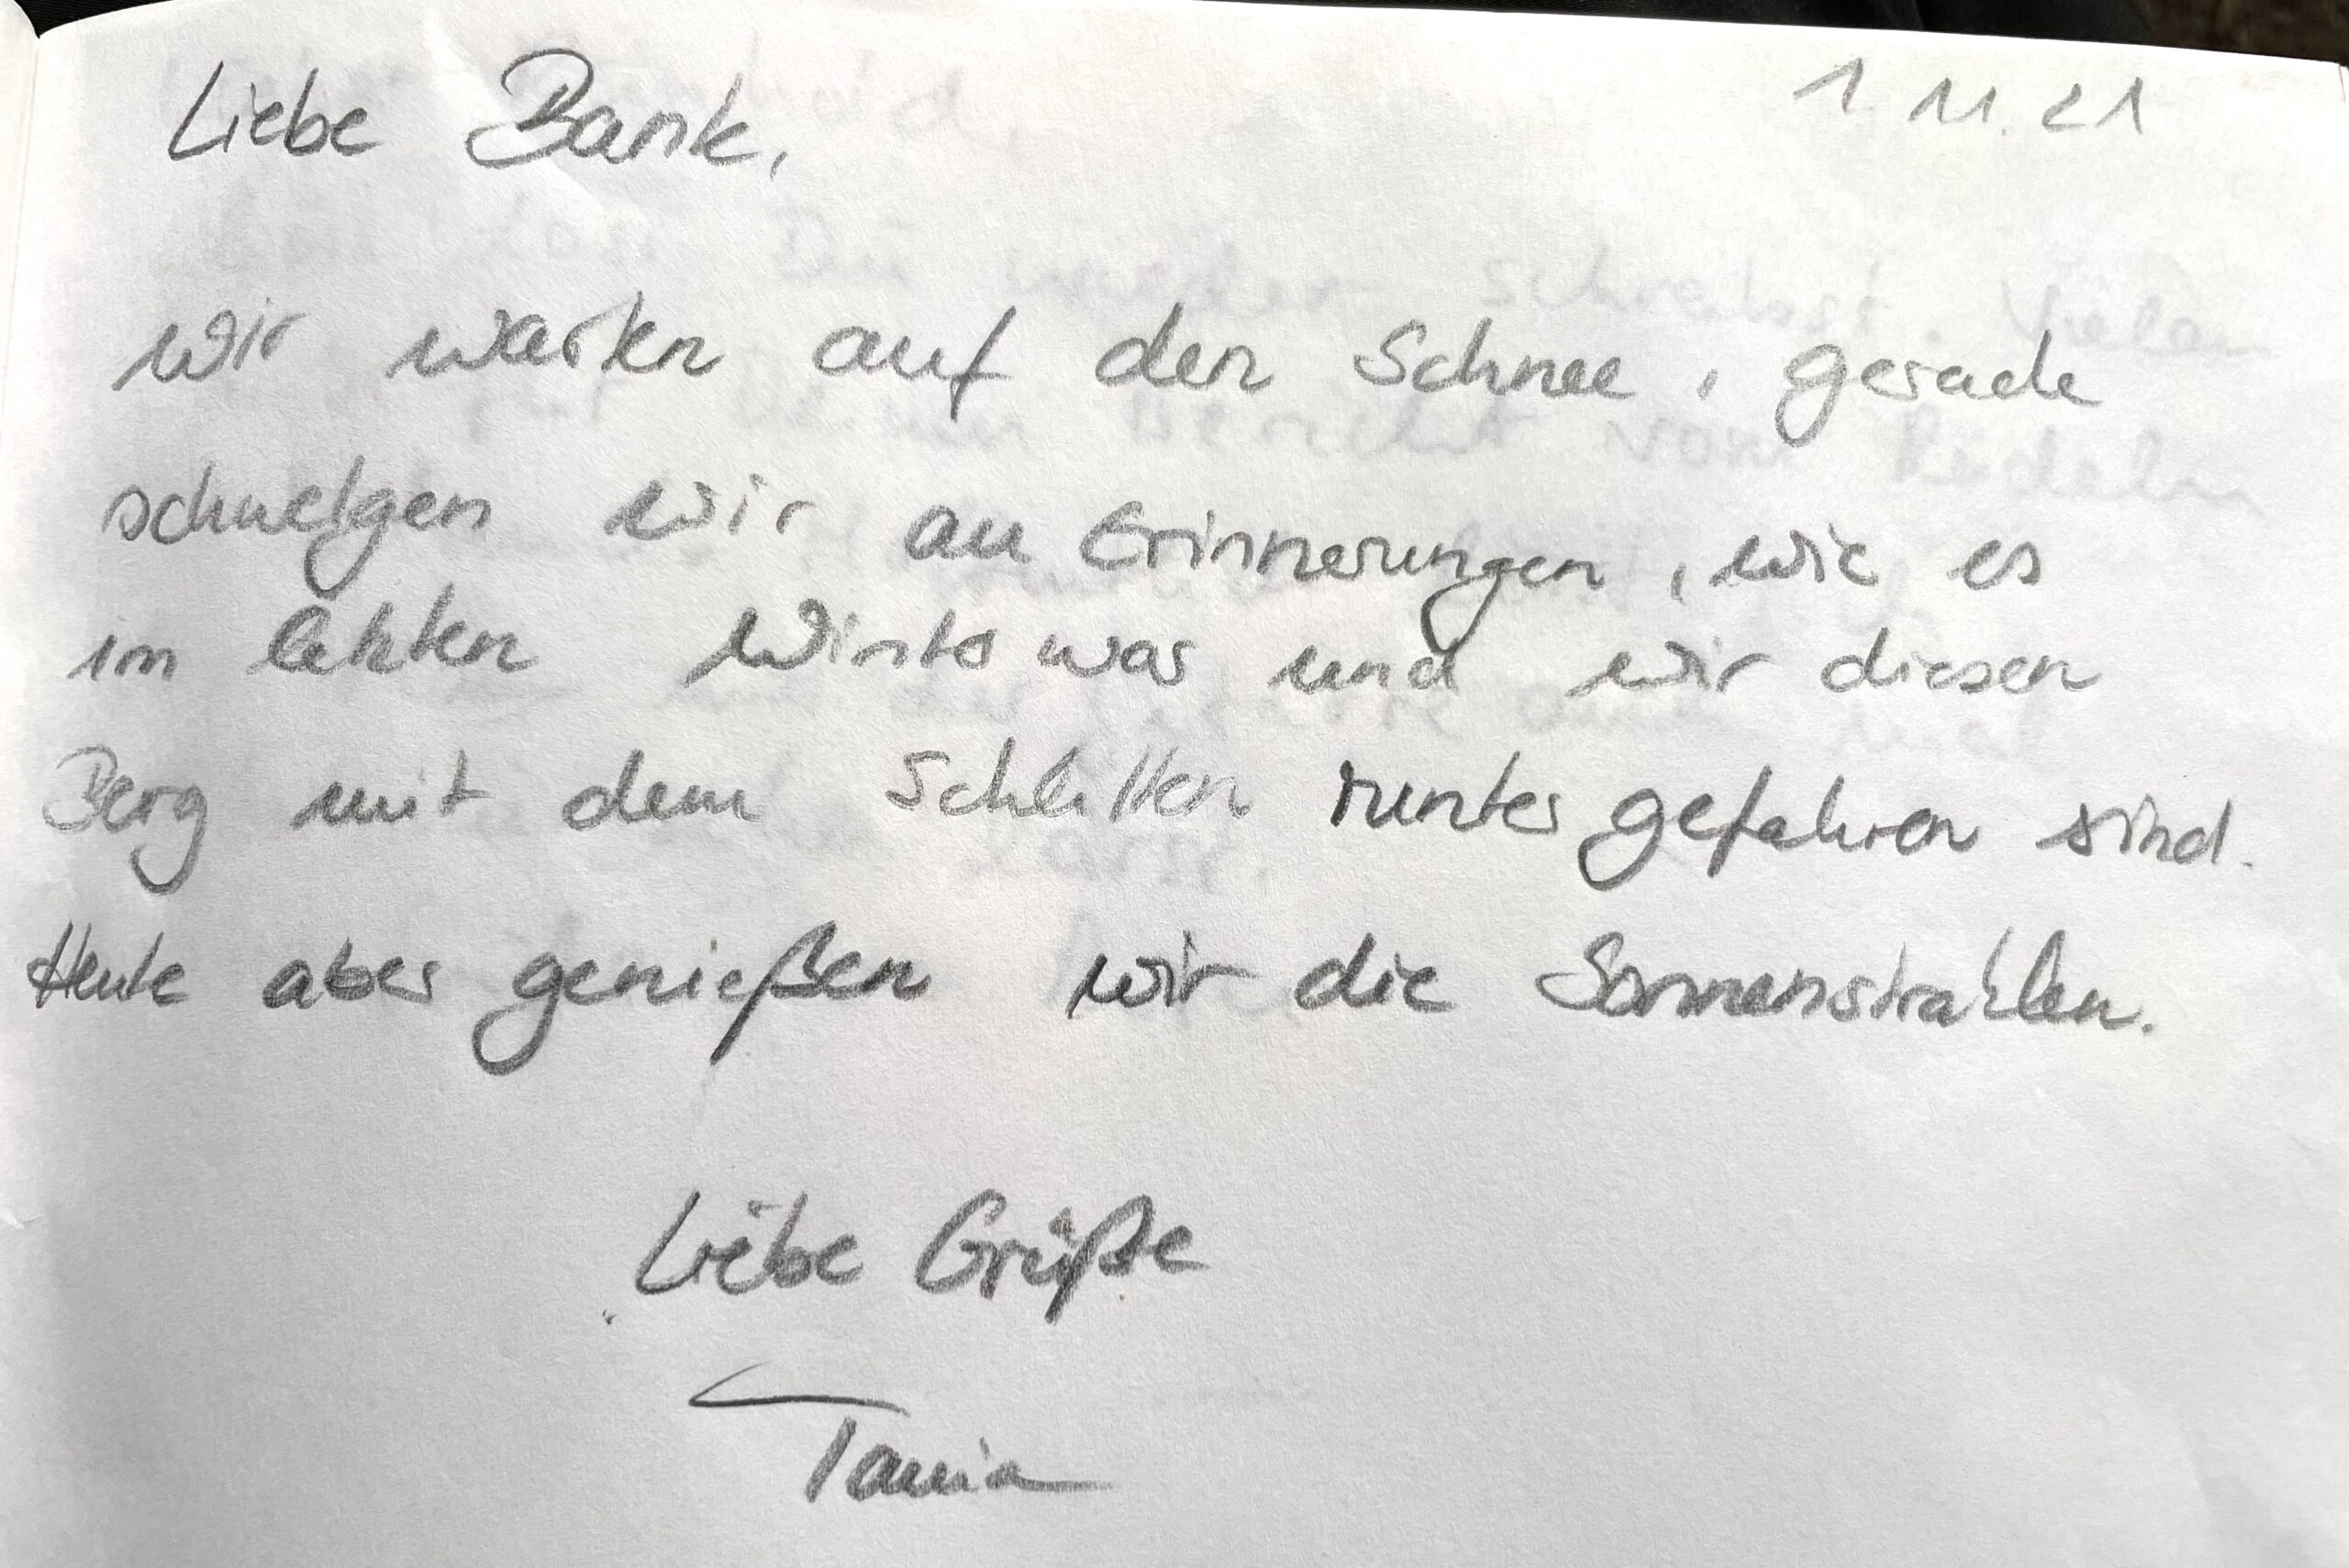 Liebe Bank, 1.11.21
wir warten auf den Schnee, gerade
schwelgen wir an Erinnerungen, wie es
im letzten Winter war und wir diesen
Berg mit dem Schlitten runter gefahren sind.
Heute aber genießen wir die Sonnenstrahlen.
Liebe Grüße
Tania